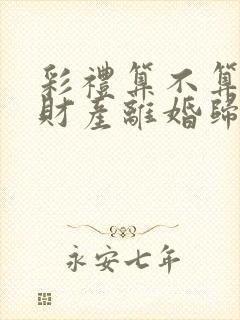 彩禮算不算
財產離婚歸
永安七年